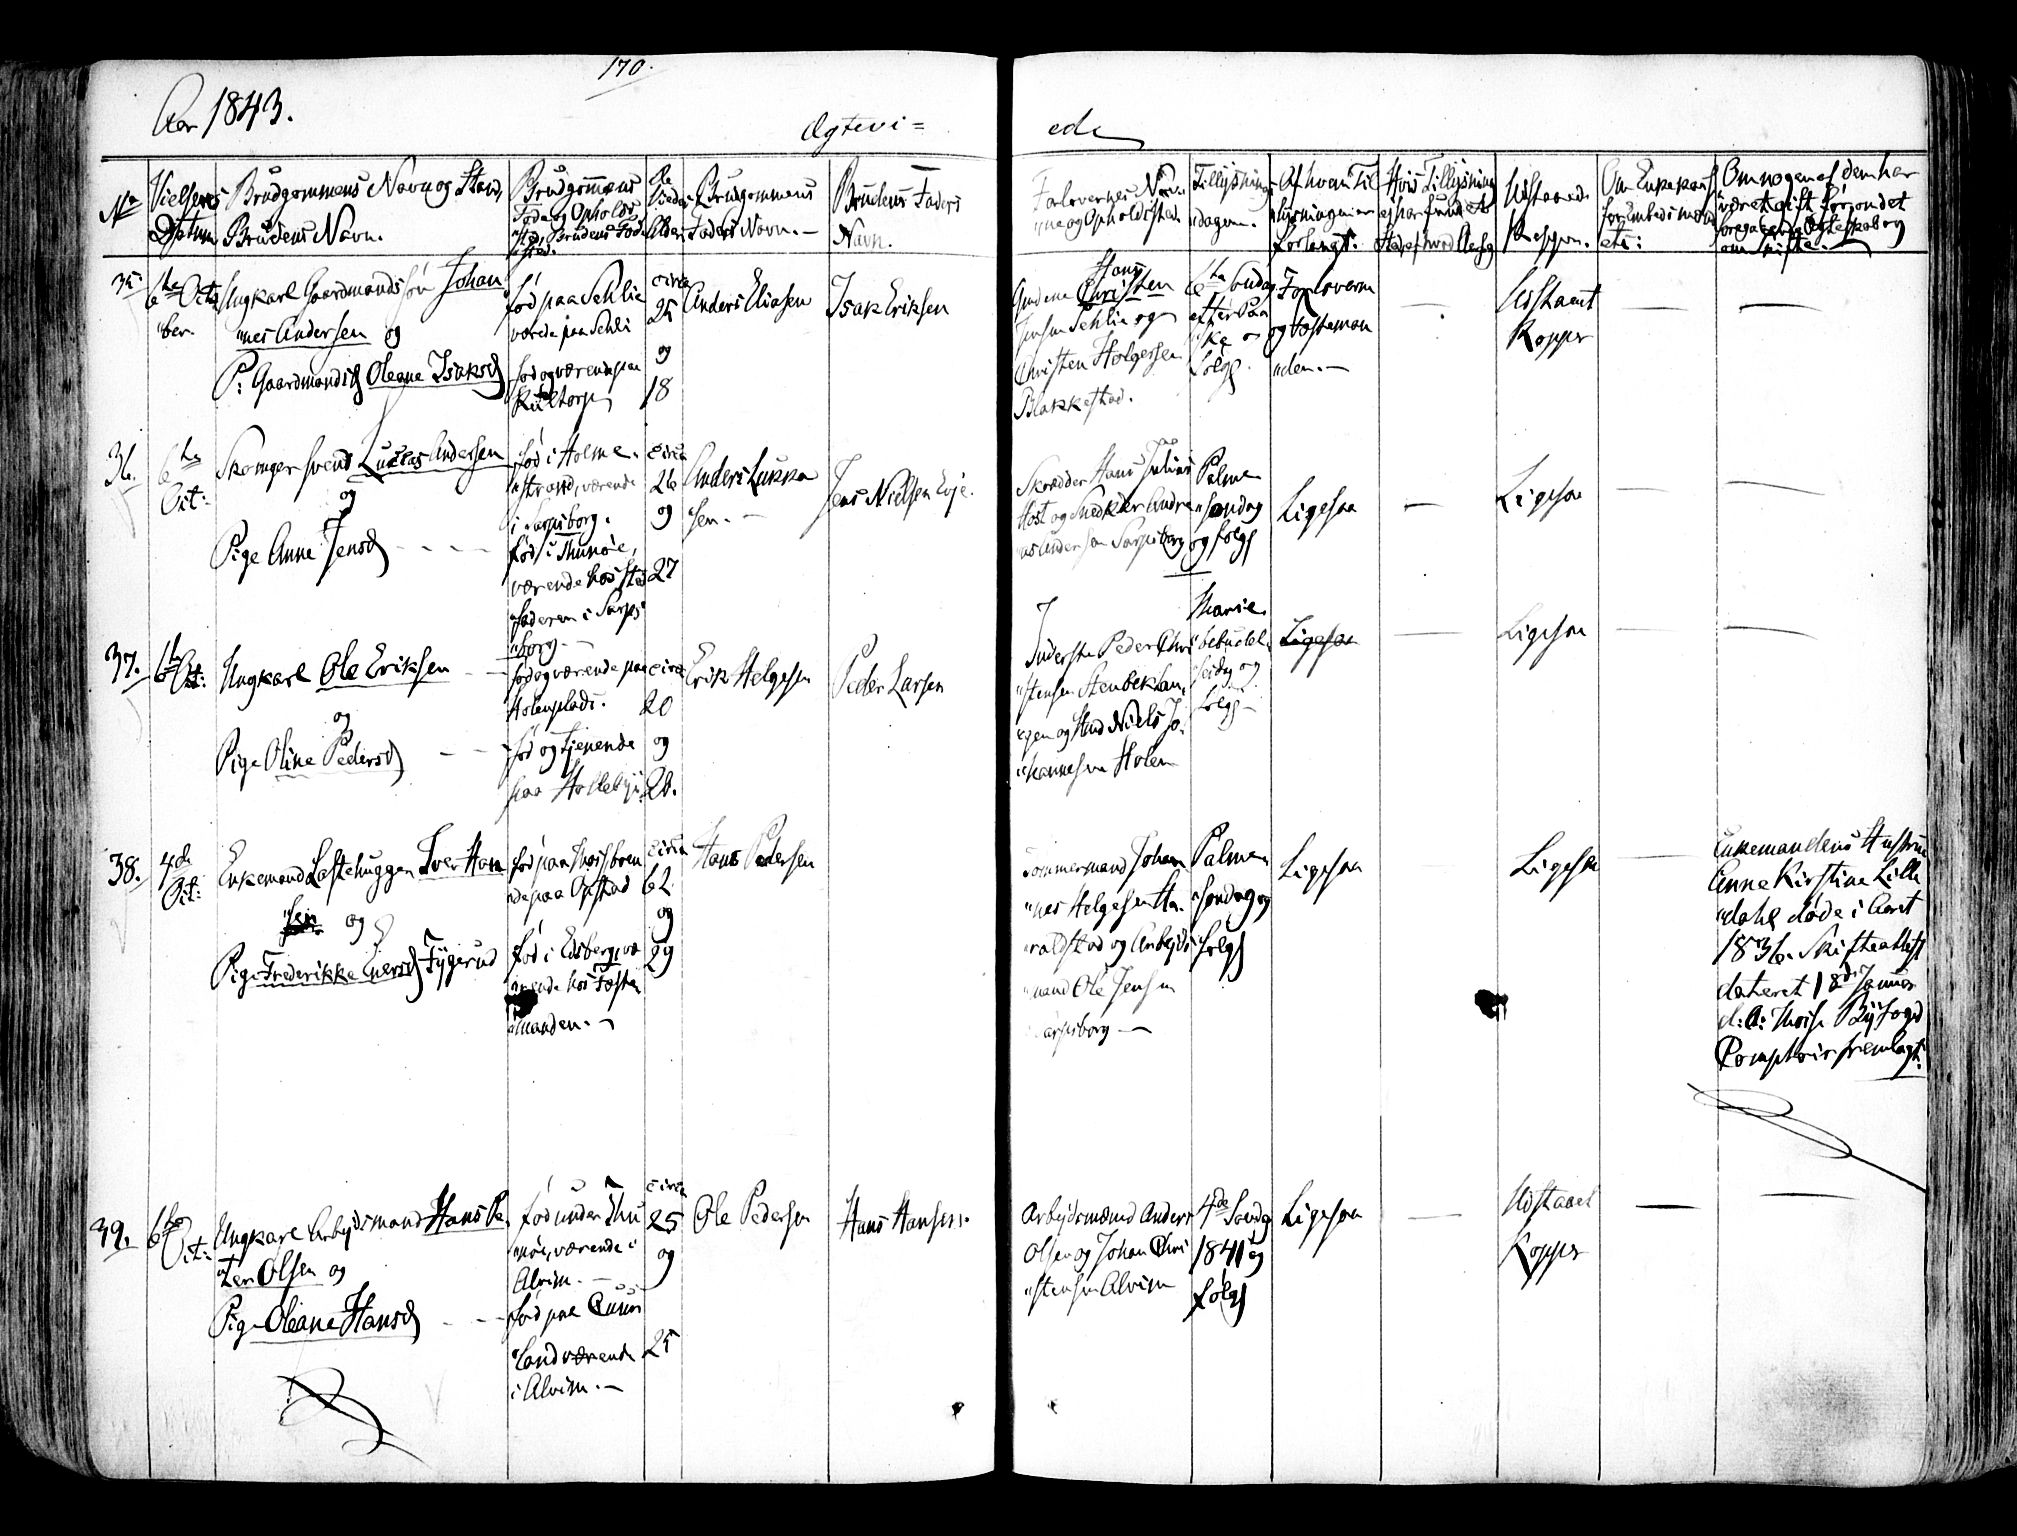 170.
Aar 1843.
Ægtevi=
ede
No
Vielsens Datum
Brudgommens Navn og Stand,
Brudens Navn.
Brudgommens
Føde og Opholds
sted, Brudens Føde
sted.
De
Viedes
Alder
Brudgommens
Faders Navn.
Brudens Faders
Navn.
Forlovernes Nav-
ne og Opholdssted
Tillysnings
dagen.
Af hvem Til
lysningen er
forlangt.
Hvis Tillysning
ei har fundet
Sted, af hvad Aarsag
Udstaaede
Kopper.
Om Enkekasse
for Embedsmænd
etc:
Om nogen af dem har
været gift før, om det
foregaaende Ægteskab og
om Skifte.
35
6te Octo
"ber.
Ungkarl Gaardmandssøn Johan
"nes Andersen og
P: Gaardmandsd Oleane Isaksd
fød paa Sehlie
værede paa Sehli
fød og værende paa
circa
25
og
18
Anders Eliasen
Isak Eriksen
Hans
Gmdene Christen
Jensen Sehlie og
Christen Holgersen
Blakkestad.
6te Søndag
efter Paa
ske og
følg.
Forloverne
og Fosteman
"den.
Udstaaet
Kopper
36.
6te
Oct:
Skomagersvend Lucas Andersen
og
Pige Anne Jensd
fød i Holme-
"strand, værende
i Sarpsborg.
fød i Thunøe,
værende hos Sted
"faderen i Sarps
"borg.
circa
26
og
27
Anders Lukka
"sen.
Jens Nielsen Evje.
Skrædder Hans Julius
Høst og Snedker Andre
"as Andersen Sarpsborg
Palme
"søndag
og følg
Ligesaa
Ligesaa
37.
6te Oct:
Ungkarl Ole Eriksen
og
Pige Oline Pedersd
fød og værende paa
Holenplads.
fød og tjenende
paa Hollebye.
circa
20
og
26.
Erik Helgesen
Peder Larsen
Inderste Peder Chri
"stensen Stenbeken
og Niels Jo-
"hannesen Holen
Marie
bebudel.
"sesdag og
følg
Ligesaa
Ligesaa
38.
4de
Oct:
Enkemand Lastehugger Iver Han
"sen og
Pige Frederikke Evensd Tygerud
fød paa boen
de paa Opstad
fød i Edsberg, væ
rende hos Foste
manden.
circa
62
og
29
Hans Pedersen
Tømmermand Johan
"nes Helgesen Ha-
"raldstad og Arbejds
"mand Ole Jensen
Sarpsborg
Palme
"søndag og
følg
Ligesaa
Ligesaa
Enkemandens Hustrue
Anne Kirstine Lille
"dahl døde i Aaret
1836. Skifteattest
dateret 18de Januar
d: A: Byfoged
Comptoir fremlagt.
39.
6te
Oct:
Ungkarl Arbejdsmand Hans Pe-
"ter Olsen og
Pige Oleane Hansd
fød under Thu
nøe, værende i
Alvim.
fød paa
"land værende
i Alvim.
circa
25
og
25
Ole Pedersen
Hans Hansen.
Arbejdsmænd Anders
Olsen og Johan Chri
"stensen Alvim
4de Søndg
1841 og
følg
Ligesaa
Udstaaet
Kopper